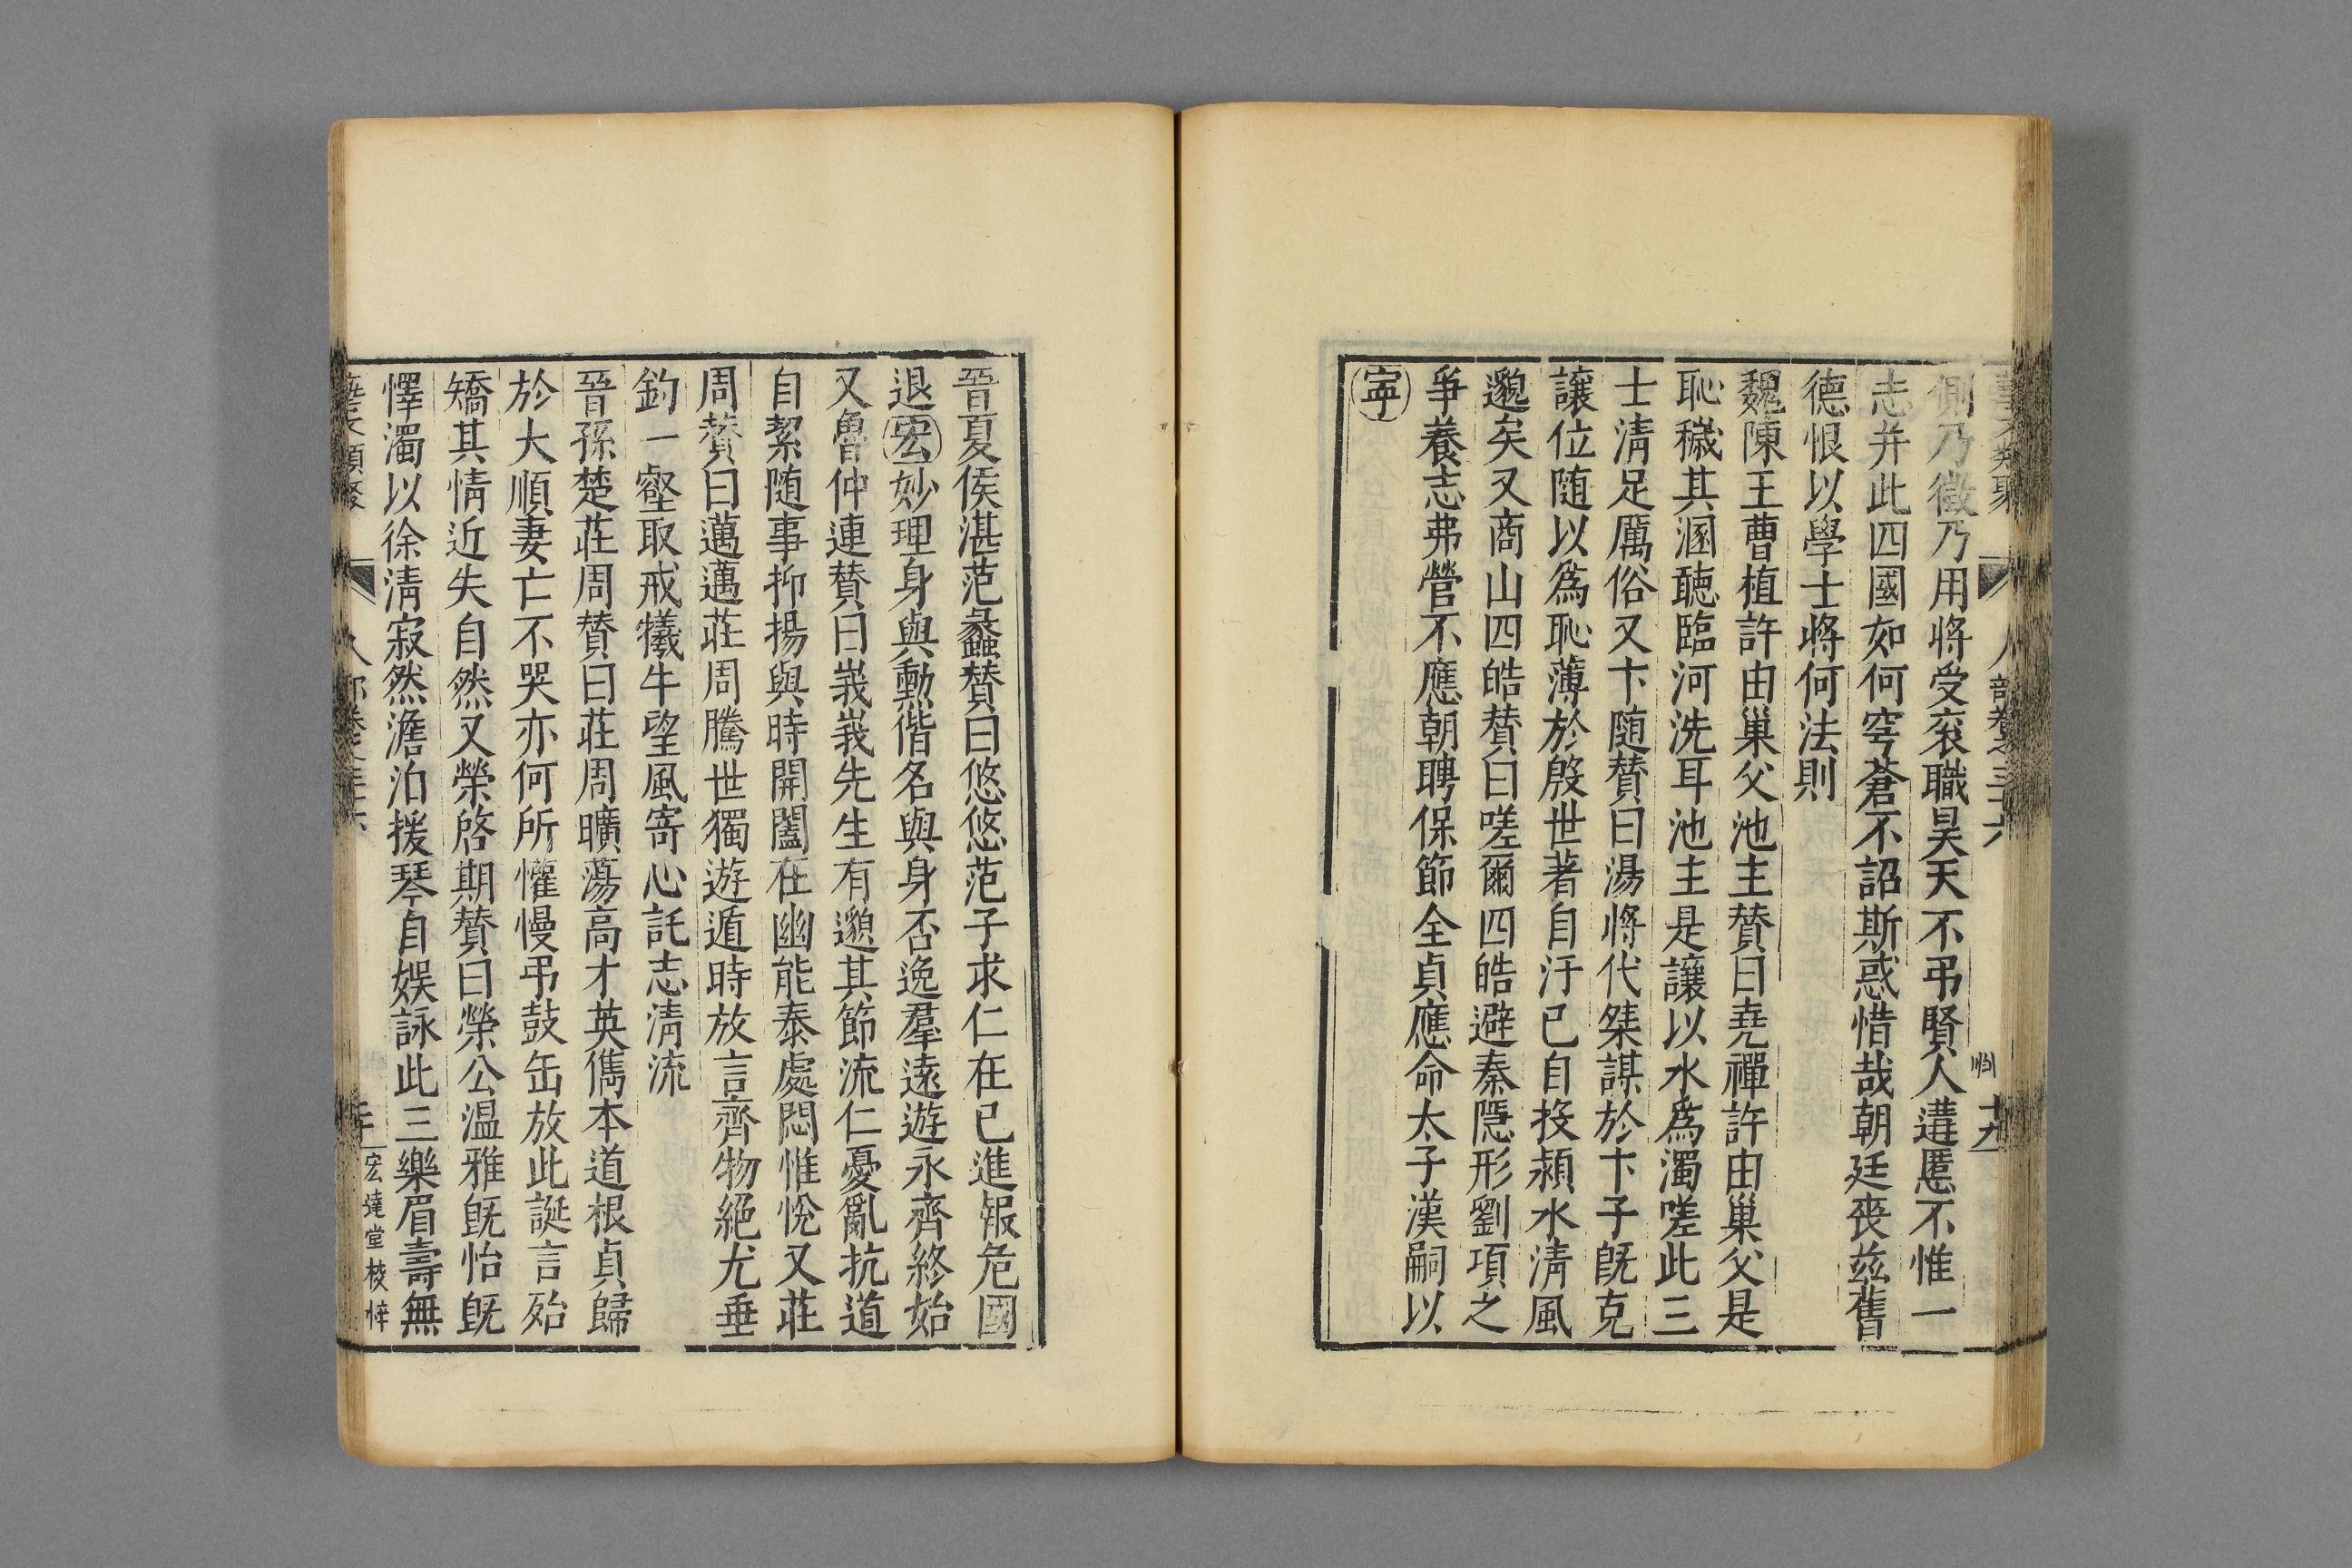 側乃徵乃用將受衮職昊天不弔賢人遘慝不惟一
志并此四國如何穹蒼不詔斯惑惜哉朝廷喪兹舊
德恨以學士將何法則
魏陳王曹植許由巢父池主贊曰堯禪許由巢父是
恥穢其溷聽臨河洗耳池主是讓以水爲濁嗟此三
士淸足厲俗又卞随贊曰湯將代桀謀於卞子旣克
讓位随以爲恥薄於殷世著自汙已自投潁水淸風
邈矣又商山四皓贊曰嗟爾四皓避秦隱形劉項之
爭養志弗營不應朝聘保節全貞應命太子漢嗣以
寧
晉夏侯湛范蠡贊曰悠悠范子求仁在已進報危國
退宏妙理身與勲偕名與身否逸羣遠遊永齊終始
又魯仲連贊曰峩峩先生有邈其節流仁憂亂抗道
自絜随事抑揚與時開闔在幽能泰處悶惟悅又莊
周贊曰邁邁莊周騰世獨遊遁時放言齊物絕尤垂
釣一壑取戒犧牛望風寄心託志淸流
晉孫楚莊周贊曰莊周曠蕩高才英儁本道根貞歸
於大順妻亡不哭亦何所懽慢弔鼓缶放此誕言殆
矯其情近失自然又榮啓期贊曰榮公温雅旣怡旣
懌濁以徐淸寂然澹泊援琴自娱詠此三樂眉壽無
宏達堂校梓